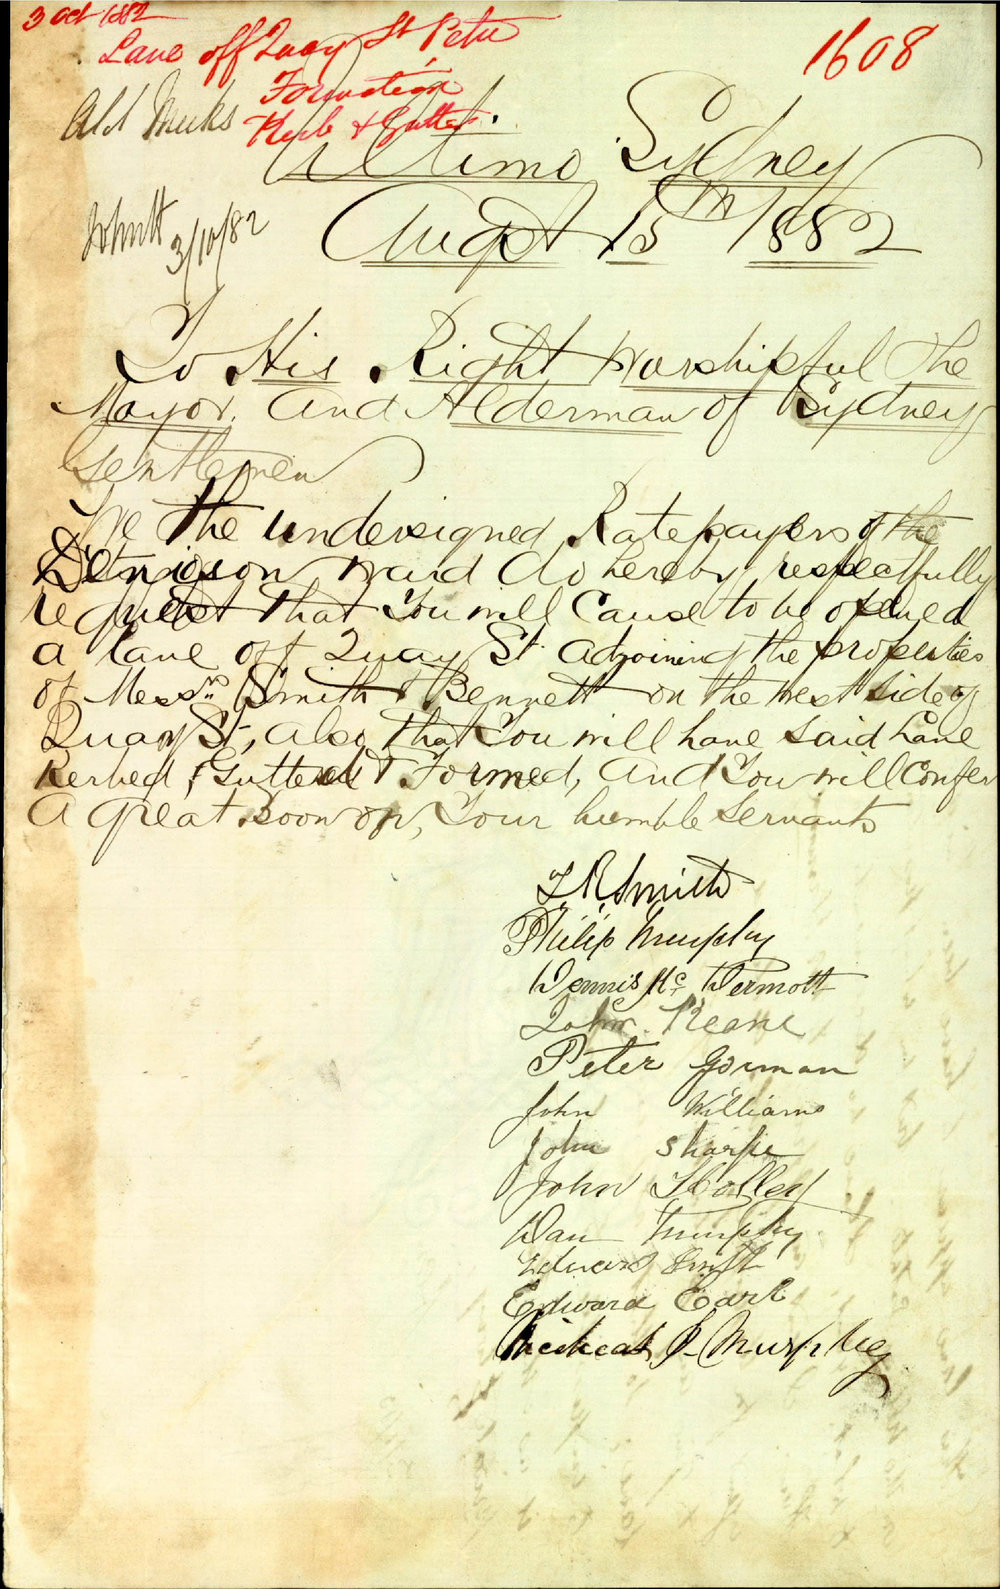 3 Oct 1882
1608
Lane off Quay St Petn
Formation
Kerb & Gutter
Ald Meeks
Ultimo Sydney
3/10/82
Augst 15th 1882
To His Right Worshipful The
Mayor, and Alderman of Sydney
Gentlemen
We the undersigned Ratepayers of the
Denison Ward do hereby respectfully
request that You will Cause to be opened
a lane off Quay St. adjoining the properties
of Messrs Smith & Bennett on the west side of
Quay St, also that You will have said Lane
Kerbed, & Guttered & Formed, and You will Confer
a great boon on, Your humble Servants
T. R. Smith
Philip Murphy
Dennis Mc Dermott
John Keane
Peter Gorman
John Williams
John Sharpe
John Holley
Dan Murphy
Edward Swift
Edward Earl
Micheal J. Murphy